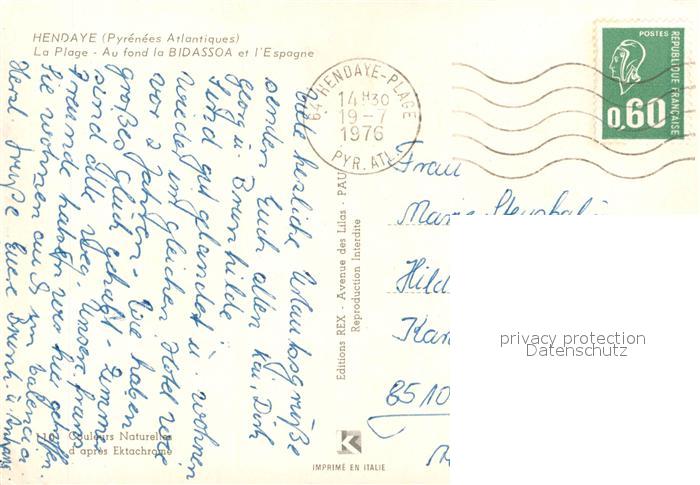 HENDAYE (Pyrénées Atlantiques)
La Plage - Au fond la BIDASSOA et l'Espagne
64 HENDAYE-PLAGE
14 H30
19-7
1976
PYR. ATL.
POSTES
RÉPUBLIQUE FRANÇAISE
0,60
Viele herzliche Urlaubsgrüße
senden Euch allen Kai, Dirk
u. Brunhilde
Sind gut gelandet u. wohnen
wieder im gleichen Hotel wie
vor 2 Jahren. Wir haben
großes Glück gehabt - Zimmer
sind alle weg. Unsere franz.
Freunde haben wir hier getroffen.
Sie wohnen aus Valencia
Herzl. Grüße Eure Brunh. u.
Editions REX - Avenue des Lilas - PAU
Reproduction Interdite
Frau
Marie
Hild
Kar
8510
privacy protection
Datenschutz
10 Couleurs Naturelles
d'après Ektachrome
K
IMPRIMÉ EN ITALIE